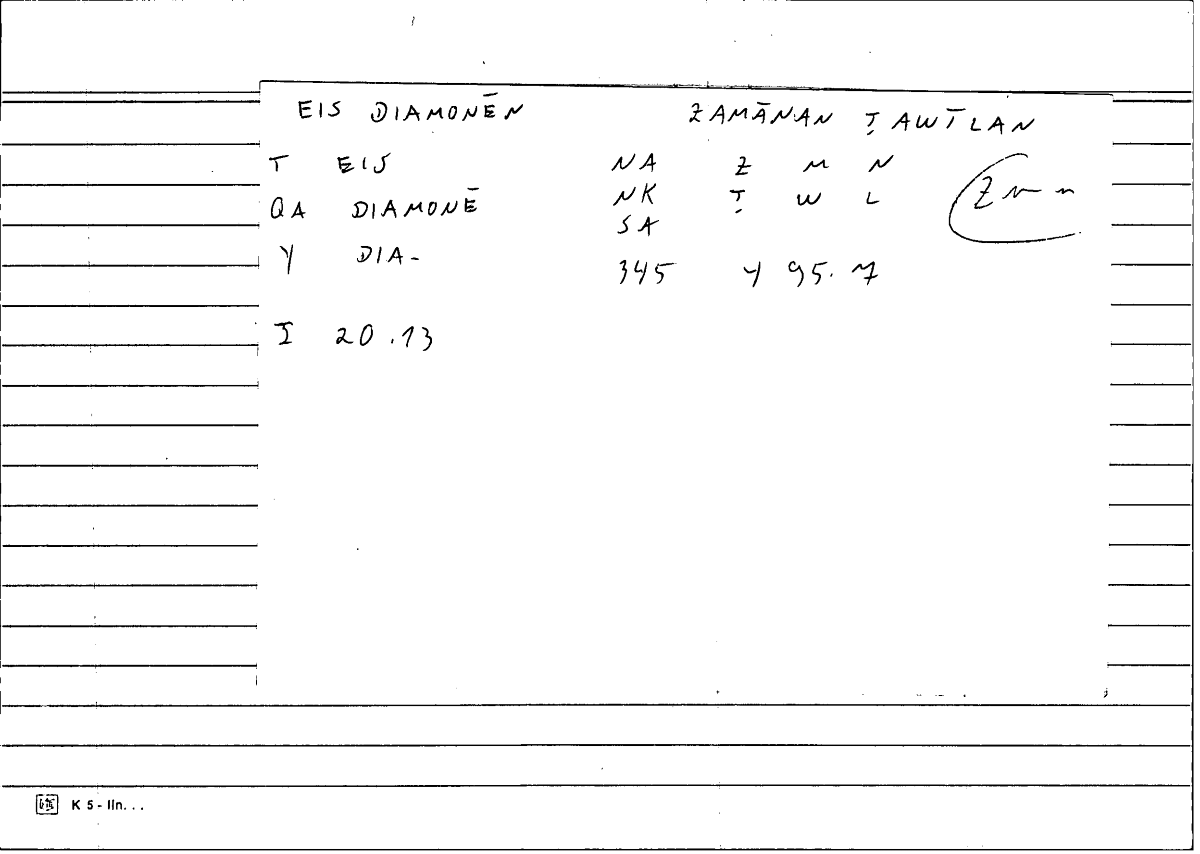 EIS DIAMONĒN ZAMĀNAN ṬAWĪLAN
T EIS NA Z M N Zmn
QA DIAMONĒ NK Ṭ W L
SA
Y DIA-
345 Y 95.7
I 20.13
K 5 - lin. . .